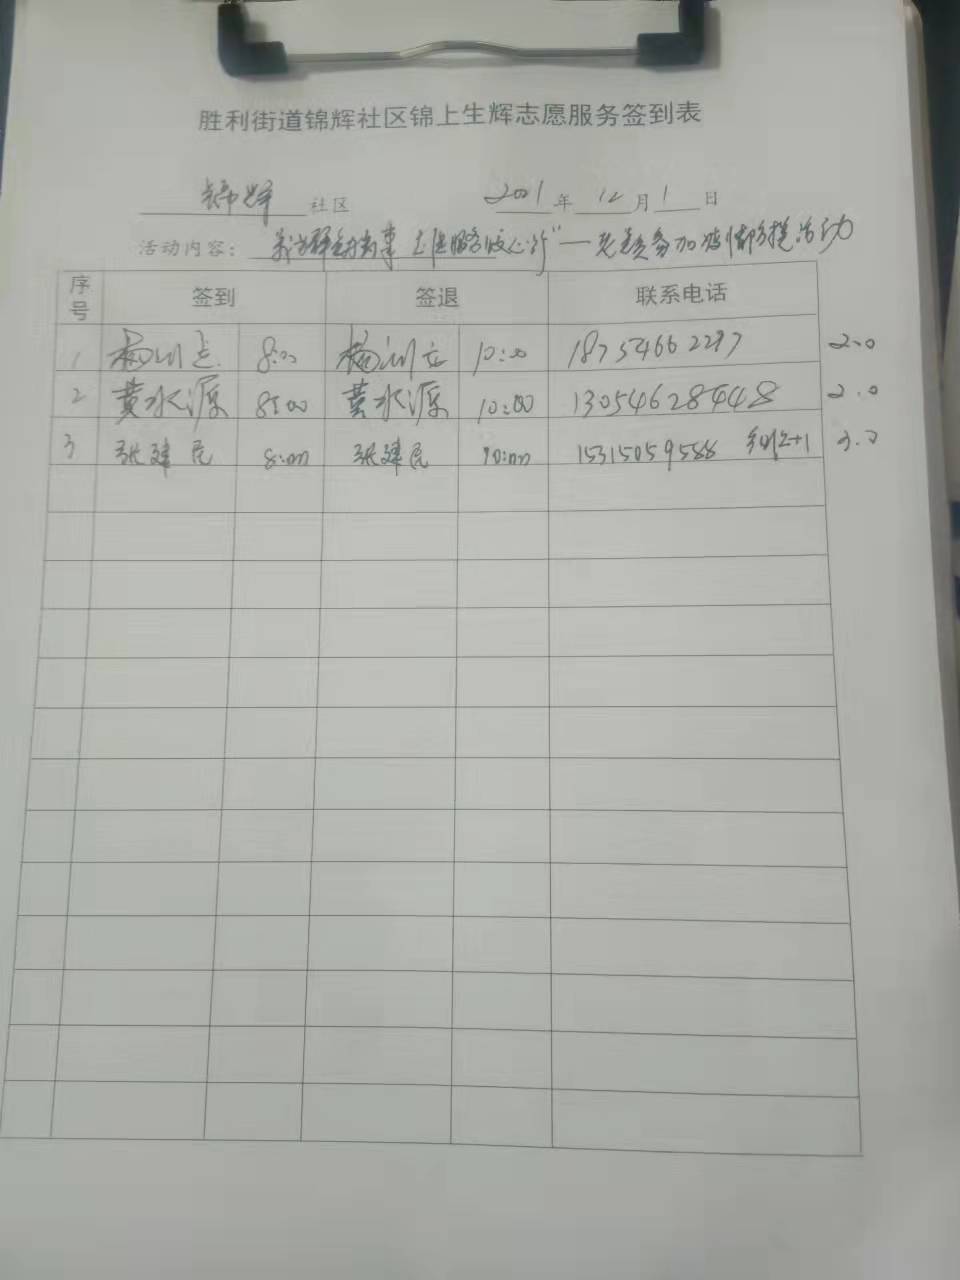 胜利街道锦辉社区锦上生辉志愿服务签到表
锦辉 社区 2021 年 12 月 1 日
活动内容: 我为群众办实事 志愿服务暖心行"一 活动
序号 签到 签退 联系电话
1 杨 8:00 杨 10:00 18754662297 2.0
2 黄水源 8:00 黄水源 10:00 13054628448 2.0
3 张建民 8:00 张建民 10:00 15315059588 +1 3.0